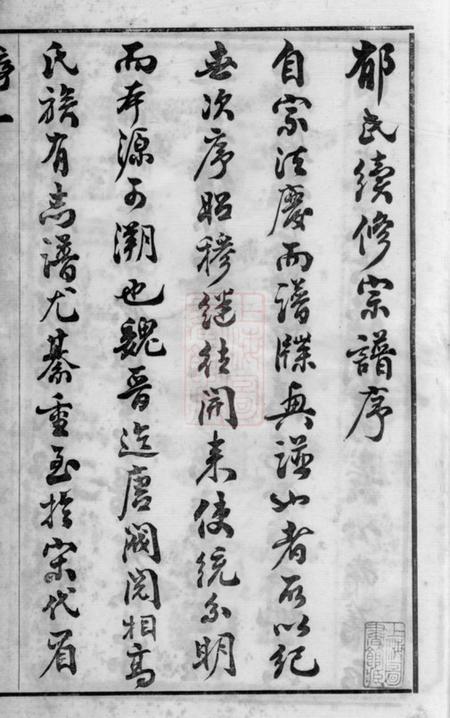 郁氏續修宗譜序
自宗法廢而譜牒興譜者所以紀
世次序昭穆繼往開來使統系明
而本源可溯也魏晋迄唐閥閱相高
氏族有志譜尤綦重至於宋代眉
序一
上海圖書館藏